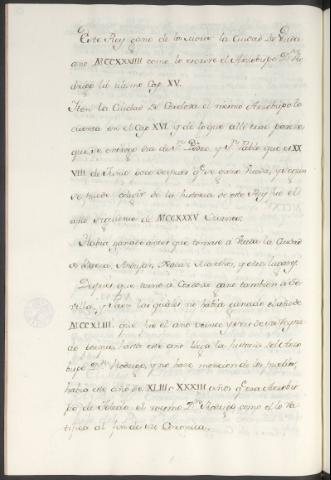 Este Rey gano de los moros la Ciudad de Ubeda
año MCCXXXIIII como lo escrive el Arzobispo Dn Ro
drigo lib ultimo Cap XV.
Iten la Ciudad de Cordova el mismo Arzobispo lo
cuenta en el Cap XVI. y de lo que alli trae parece
que se entrego dia de Sn Pedro, y Sn Pablo que es XX
VIIII de Junio poco despues que se gano Ubeda, y segun
se puede colegir de la historia de este Rey fue el
año siguiente de MCCXXXV
Havia ganado antes que tomase a Ubeda la Ciudad
de Baeza, Andujar, Martos, y otros lugares.
Despues que tomo a Cordova gano tambien a Se
villa, y Jaen las quales no havia ganado el año de
MCCXLIII. que fue el año veinte y seis de su Reyna
do porque hasta este año llega la historia del Arzo
bispo Dn Rodrigo, y no hace mencion de
havia este año de XLIII XXXIII años que era Arzobis
po de Toledo el mismo Dn Rodrigo como el lo te
stifica al fin de su Coronica.